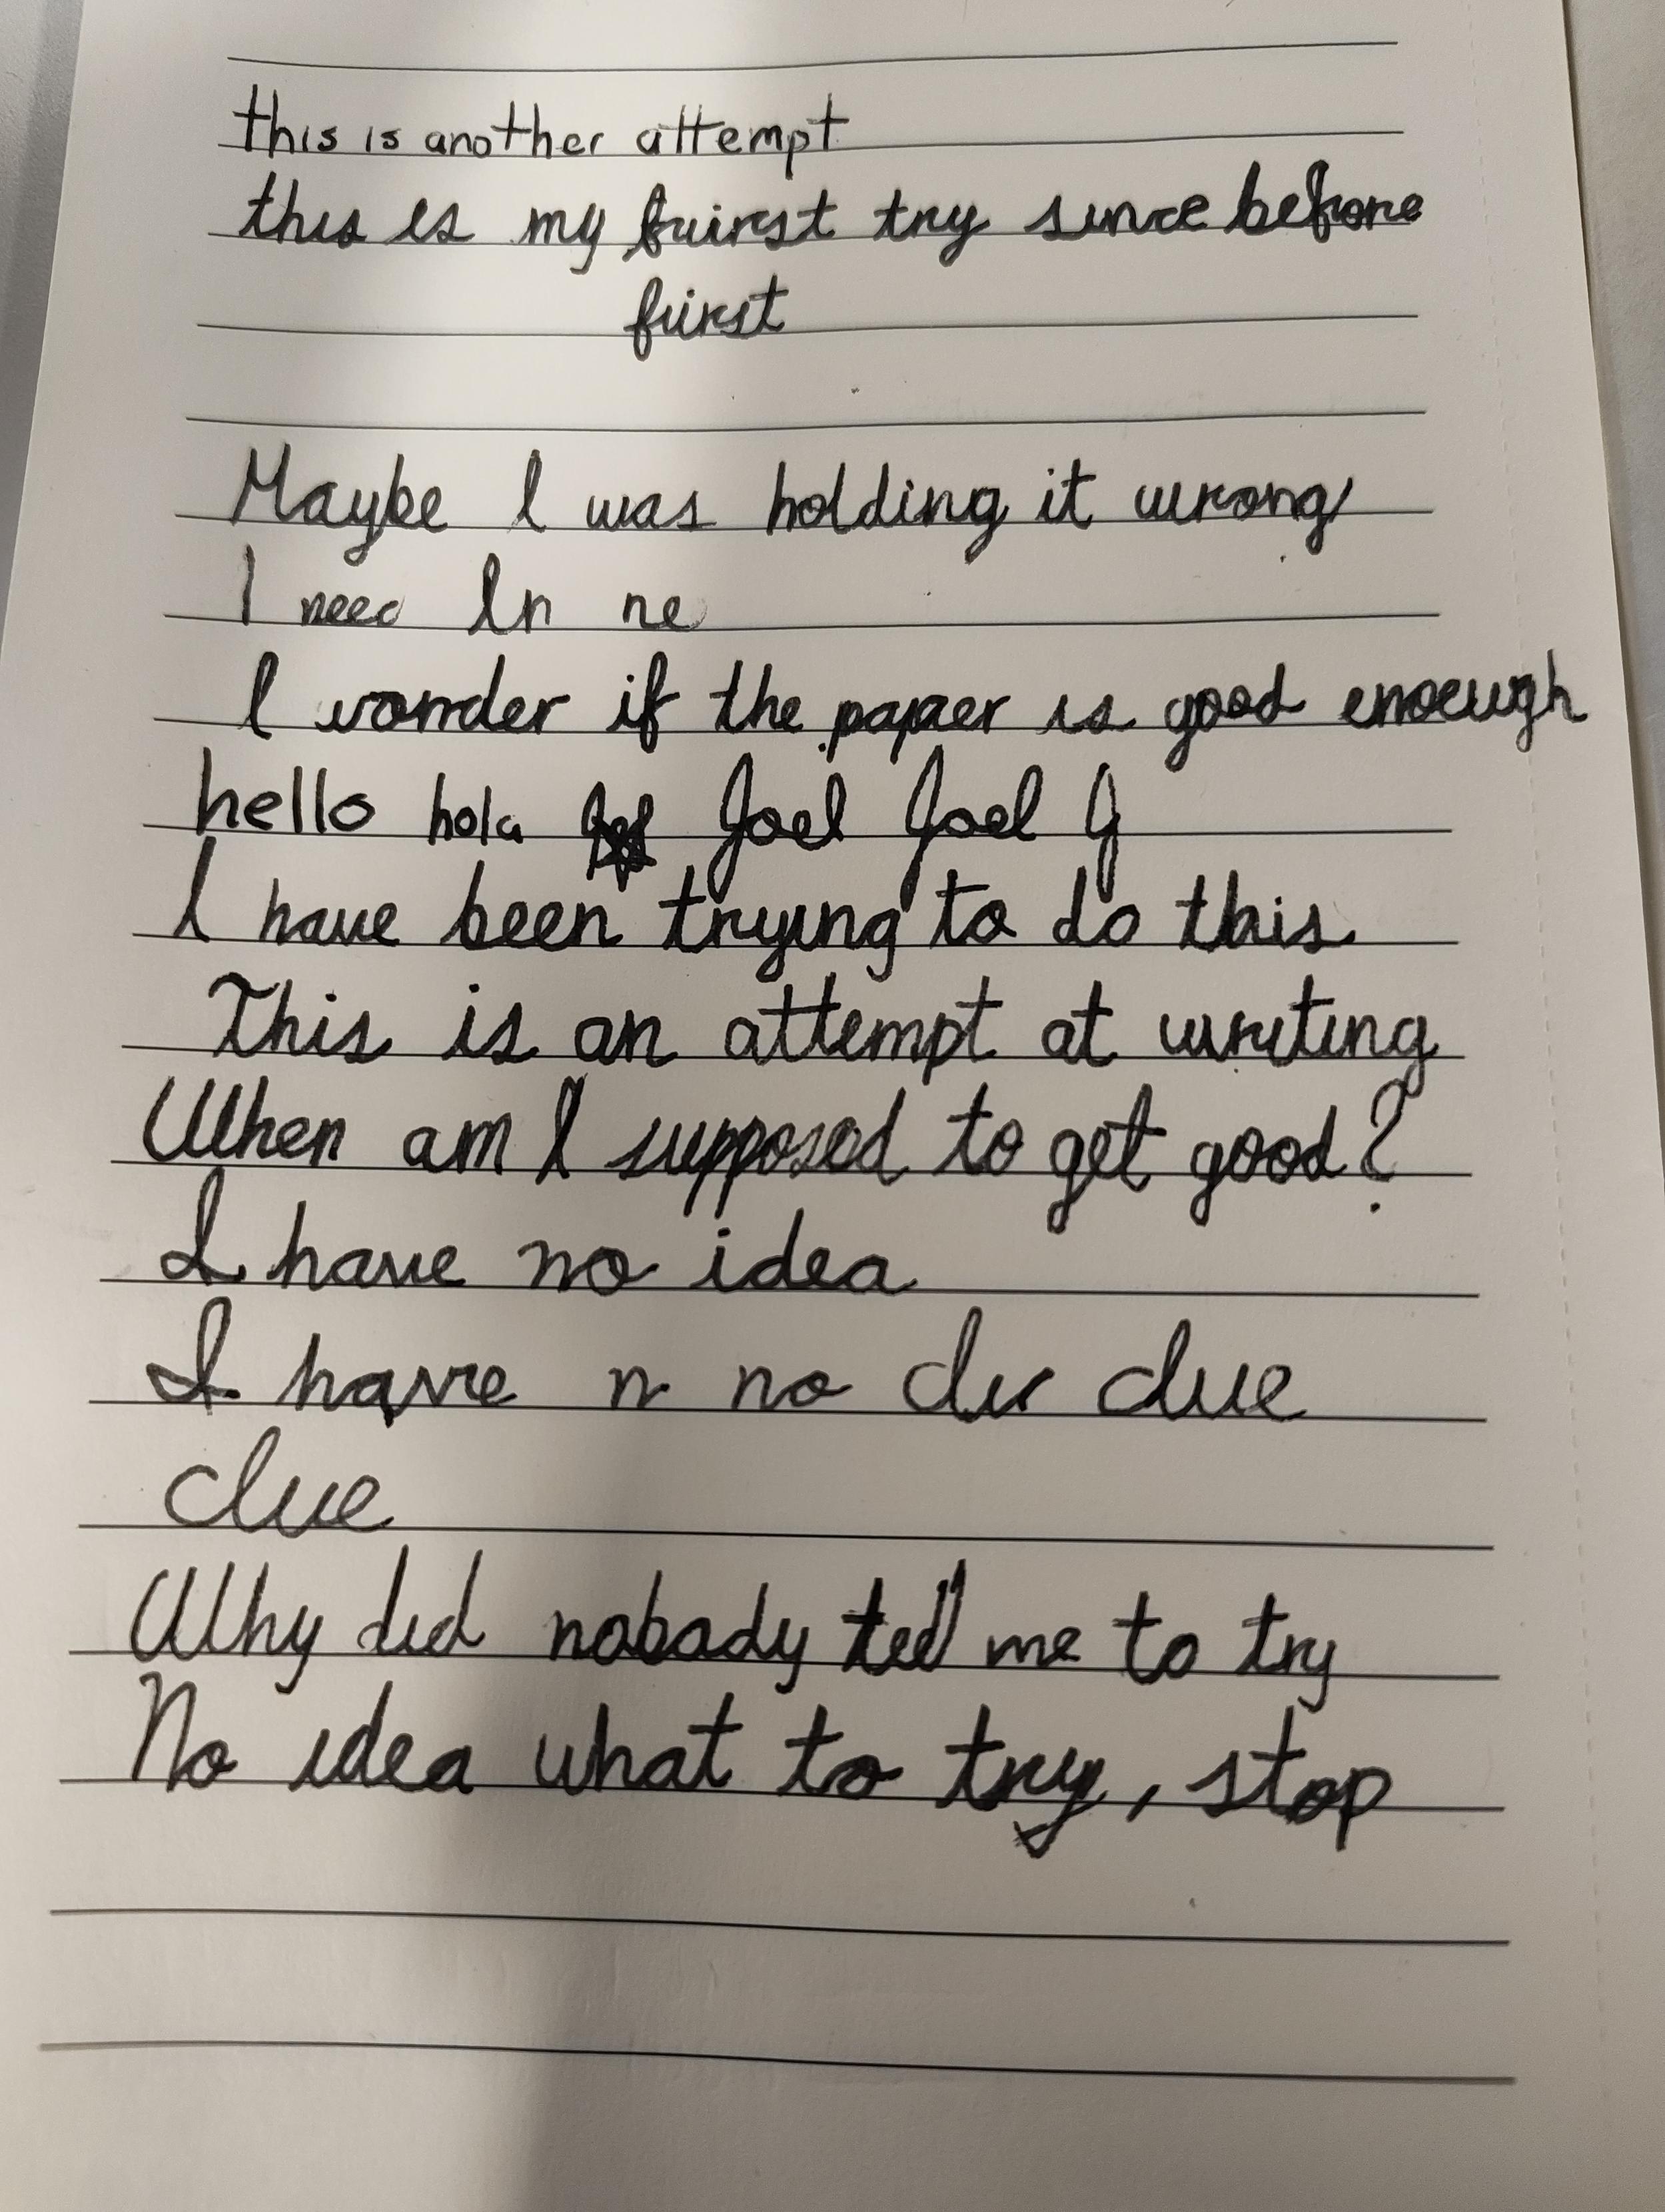 this is another attempt
this is my fuirst try since before
furst
Maybe I was holding it wrong
I need In ne
I wonder if the paper is good enoeugh
hello hola Joel Joel J
I have been trying to do this
This is an attempt at writing
When am I supposed to get good?
I have no idea
I have n no clu clue
clue
Why did nobady tell me to try
No idea what to try, stop